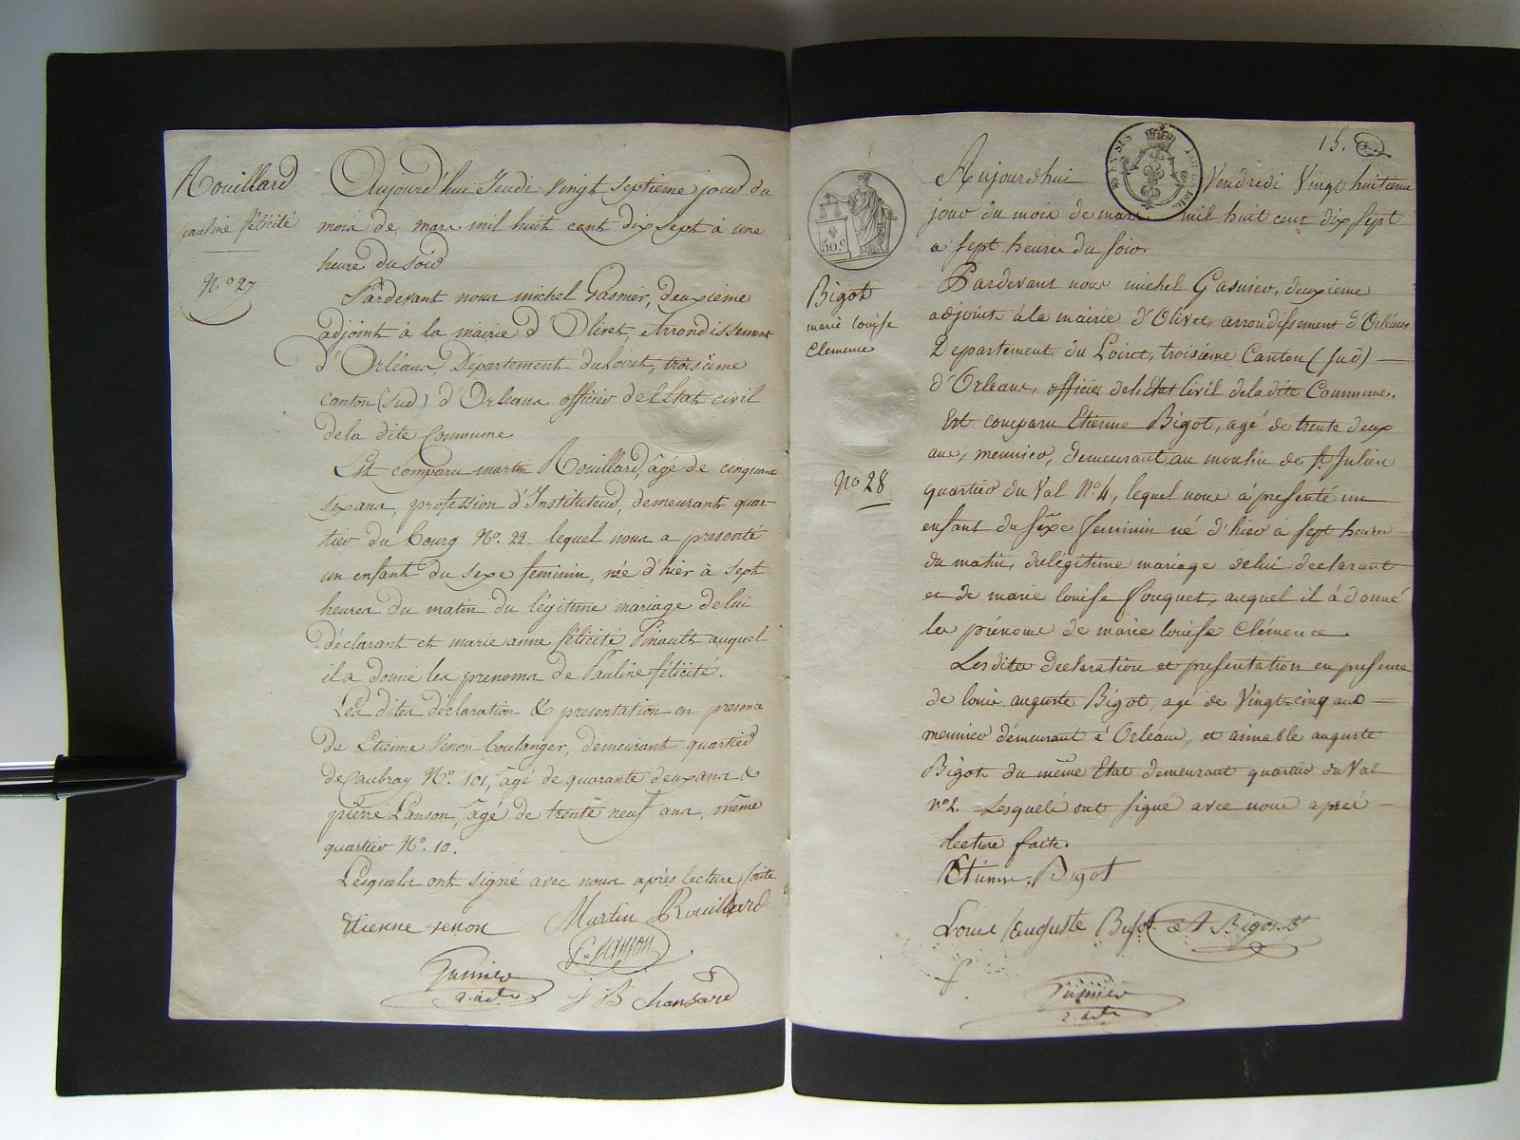 Rouillard
pauline félicité
N.º 27
Aujourd'hui Jeudi vingt septieme jour du
mois de mars mil huit cent dix sept à une
heure du soir
Pardevant nous michel Gasnier, deuxième
adjoint à la mairie d'Olivet, Arrondissement
d'Orléans, Département du Loiret, troisième
canton (sud) d'Orleans officier de l'Etat civil
de la dite Commune
Est comparu martin Rouillard, âgé de cinquante
six ans, profession d'Instituteur, demeurant quar-
tier du Bourg N.º 22. lequel nous a presenté
un enfant du sexe feminin, née d'hier à sept
heures du matin du légitime mariage de lui
déclarant et marie anne félicité Pinault auquel
il a donné les prenoms de Pauline félicité.
Les dites déclaration & presentation en presence
de Etienne Senon boulanger, demeurant quartier
de Caubray N.º 101, âgé de quarante deux ans &
pierre Lanson, âgé de trente neuf ans, même
quartier N.º 10.
Lesquels ont signé avec nous après lecture faite
etienne senon Martin Rouillard
P. Lanson
Gasnier
2. adt
J B Chansard
15.
50 c
Aujourdhui Vendredi Vingt huitieme
jour du mois de mars mil huit cent dix sept
a sept heures du soir
Pardevant nous michel Gasnier, deuxieme
adjoint à la mairie d'Olivet, arrondissement d'Orléans
Departement du Loiret, troisieme Canton (sud)
d'Orleans, officier de l'Etat Civil de la dite Commune.
Bigot
marie louise
Clemence
No 28
Est comparu Etienne Bigot, agé de trente deux
ans, meunier, demeurant au moulin de St. Julien
quartier du Val No. 4, lequel nous à presenté un
enfant du sexe feminin né d'hier a sept heures
du matin, du légitime mariage de lui declarant
et de marie louise fouquet, auquel il à donné
les prénoms de marie louise Clémence
Les dites declaration et presentation en presence
de louis auguste Bigot, agé de Vingt-cinq ans
meunier demeurant à Orléans, et aimable auguste
Bigot du même Etat demeurant quartier du Val
no 2. Lesquels ont signé avec nous après
lecture faite.
Etienne. Bigot
Louis auguste Bigot A Bigot
Gasnier
2. adt